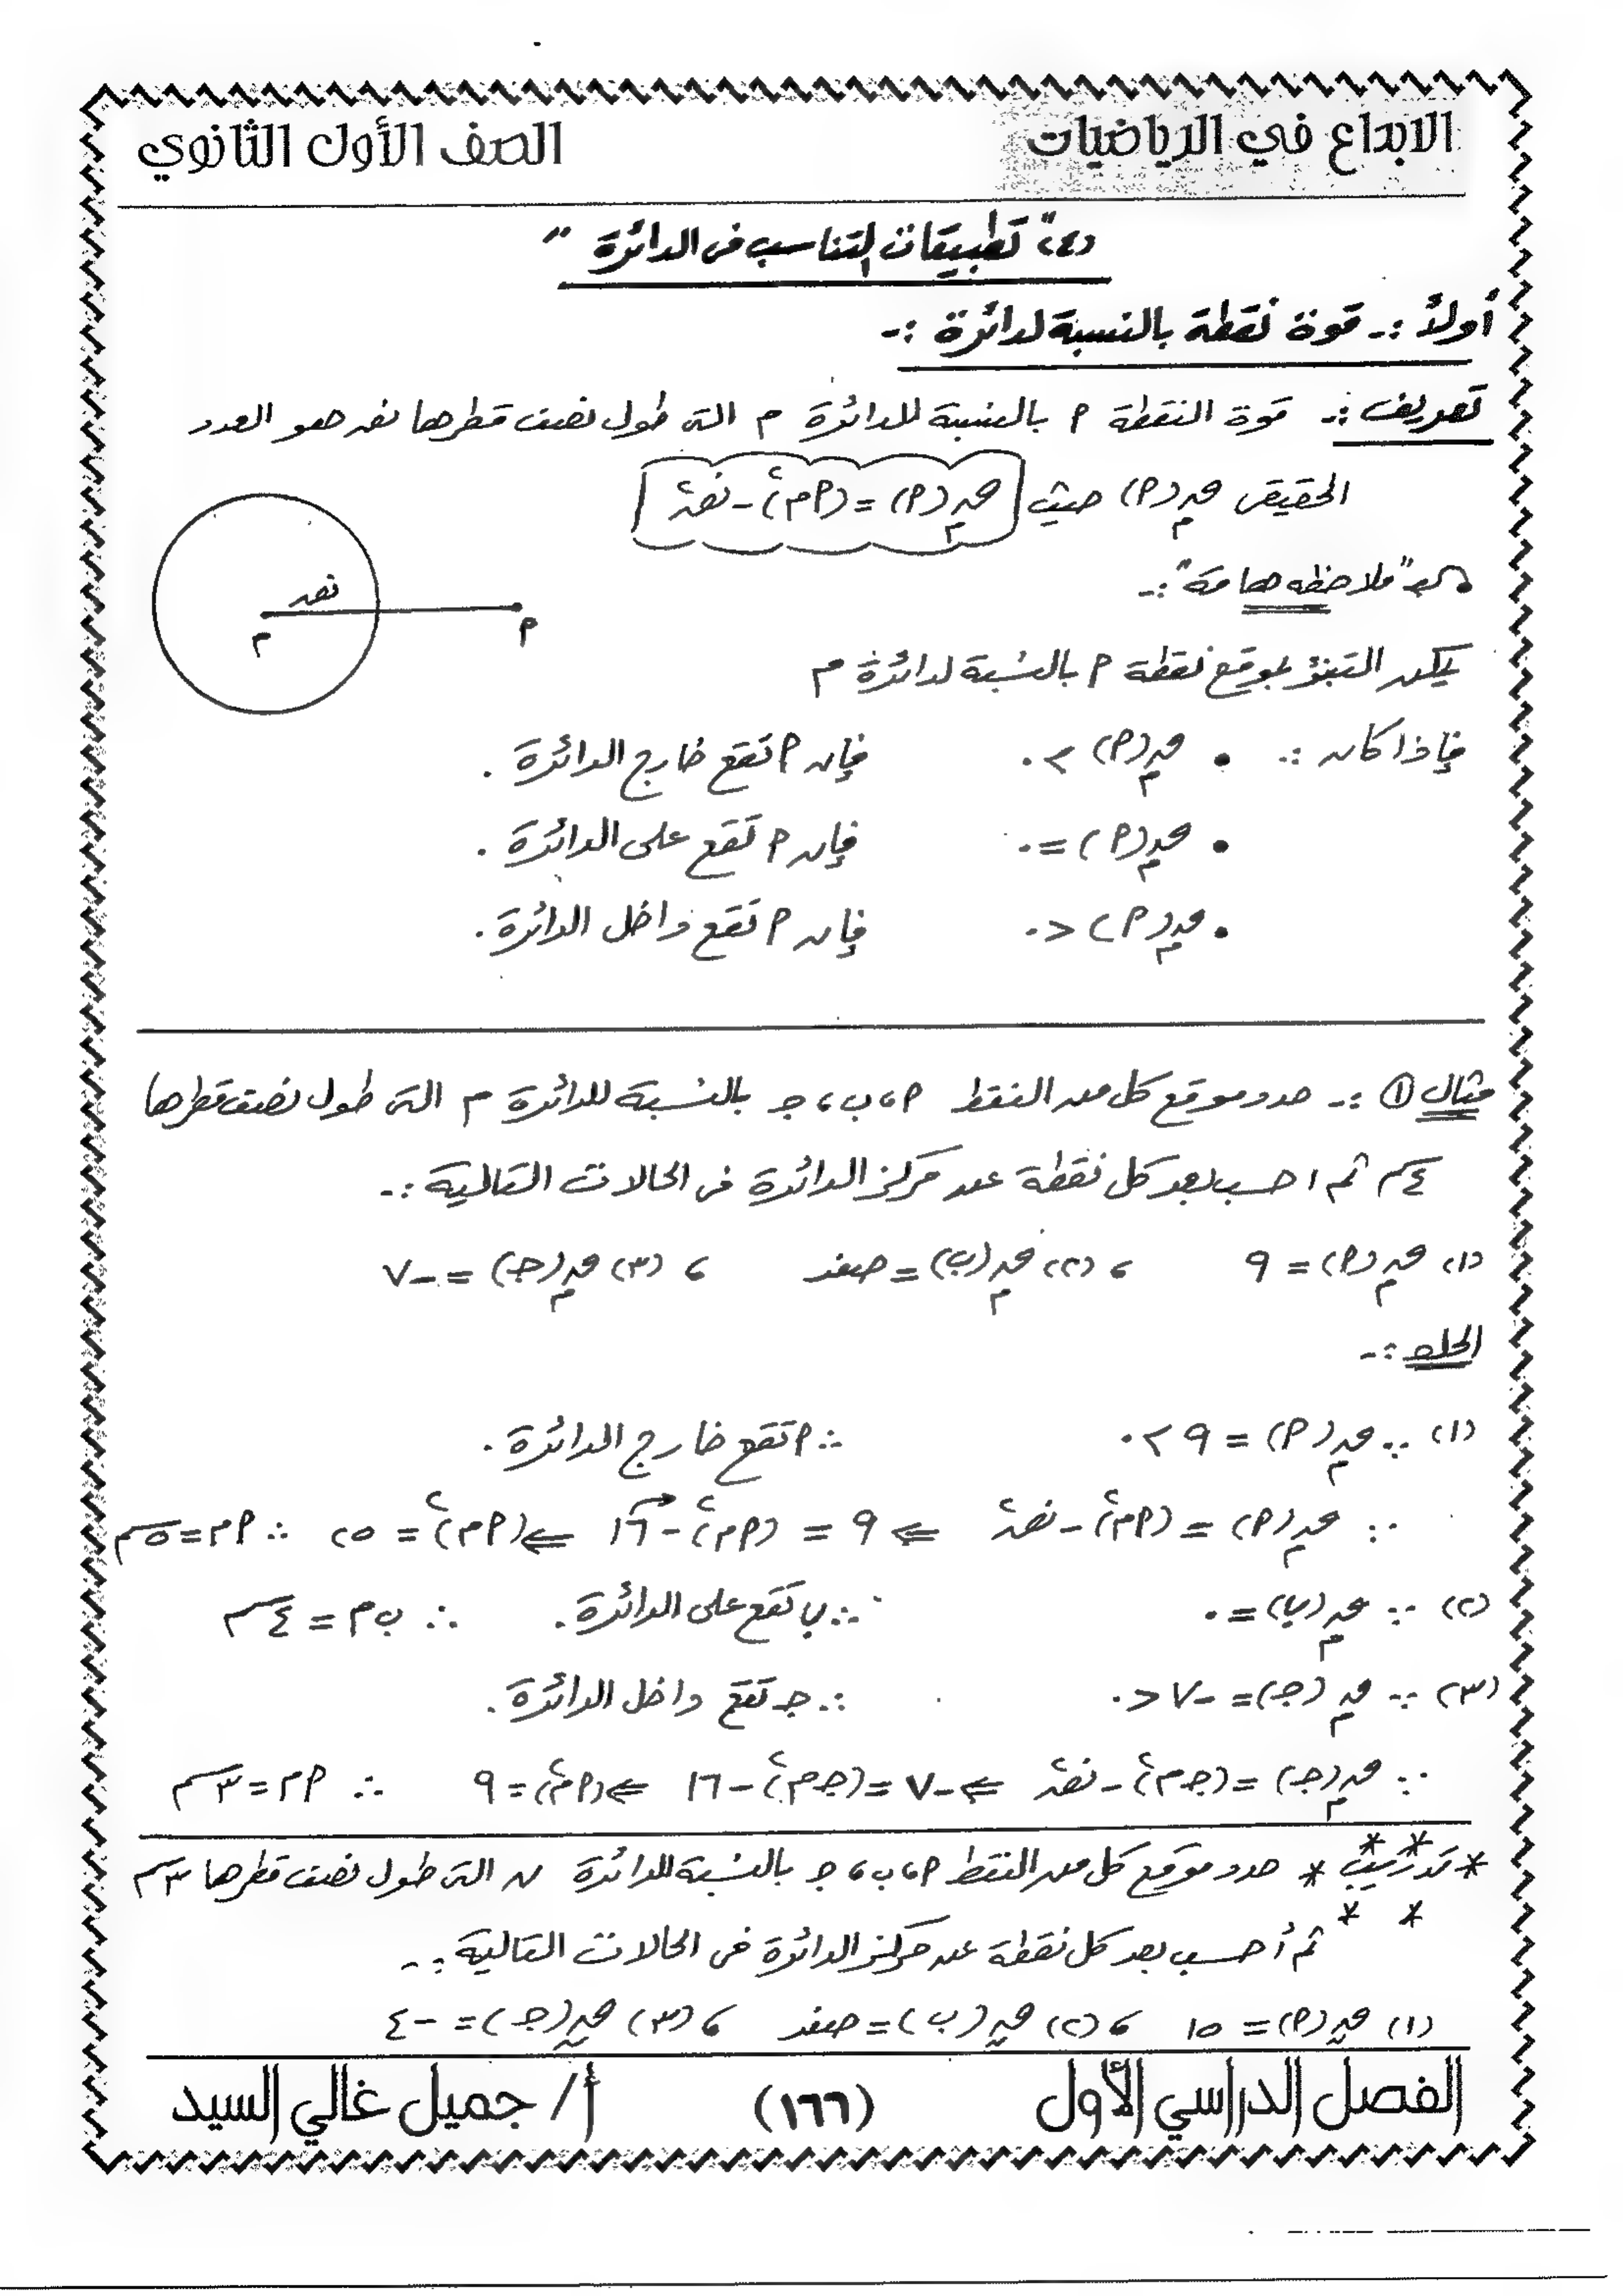 الابداع في الرياضيات
الصف الأول الثانوي
(٤) "تطبيقات التناسب فى الدائرة"
أولاً :- قوة نقطة بالنسبة لدائرة :-
تعريف :- قوة النقطة P بالنسبة للدائرة م التى طول نصف قطرها نق هو العدد
الحقيقى قم(P) حيث قم(P) = (Pم)٢ - نق٢
نق
م
P
"ملاحظه هامة" :-
يمكن التنبؤ بموقع نقطة P بالنسبة لدائرة م
فإذا كان :- • قم(P) > ٠ فإن P تقع خارج الدائرة .
• قم(P) = ٠ فإن P تقع على الدائرة .
• قم(P) < ٠ فإن P تقع داخل الدائرة .
مثال ① :- حدد موقع كل من النقط P ، ب ، جـ بالنسبة للدائرة م التى طول نصف قطرها
٤سم ثم احسب بعد كل نقطة عن مركز الدائرة فى الحالات التالية :-
(١) قم(P) = ٩ ، (٢) قم(ب) = صفر ، (٣) قم(جـ) = -٧
الحل :-
(١) ∵ قم(P) = ٩ > ٠ ∴ P تقع خارج الدائرة .
∵ قم(P) = (Pم)٢ - نق٢ ⇐ ٩ = (Pم)٢ - ١٦ ⇐ (Pم)٢ = ٢٥ ∴ Pم = ٥سم
(٢) ∵ قم(ب) = ٠ ∴ ب تقع على الدائرة . ∴ ب م = ٤سم
(٣) ∵ قم(جـ) = -٧ < ٠ ∴ جـ تقع داخل الدائرة .
∵ قم(جـ) = (جـم)٢ - نق٢ ⇐ -٧ = (جـم)٢ - ١٦ ⇐ (Pم)٢ = ٩ ∴ Pم = ٣سم
* تدريب * حدد موقع كل من النقط P ، ب ، جـ بالنسبة للدائرة ن التى طول نصف قطرها ٣سم
ثم أحسب بعد كل نقطة عن مركز الدائرة فى الحالات التالية :-
(١) قم(P) = ١٥ ، (٢) قم(ب) = صفر ، (٣) قم(جـ) = -٤
الفصل الدراسي الأول
(١٦٦)
أ/ جميل غالي السيد